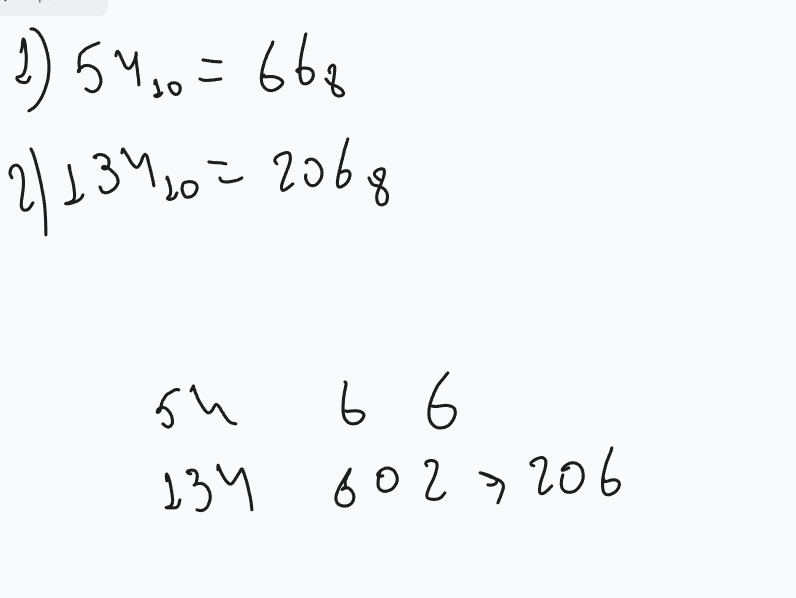 1) 54₁₀ = 66₈
2) 134₁₀ = 206₈
54 6 6
134 6 0 2 → 206